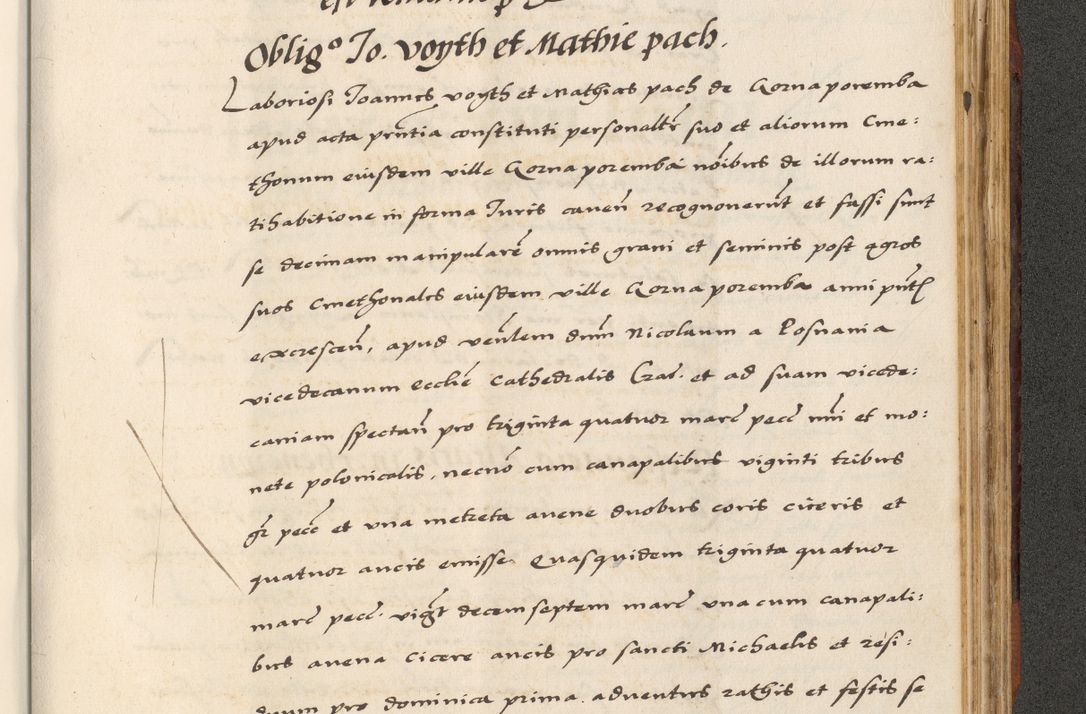 Oblig° Jo. voyth et Mathie pach.
Laboriosi Joannes voyth et Mathias pach de Gorna poremba
apud acta prntia constituti personaltr suo et aliorum Cme:
thonum eiusdem ville Gorna poremba noibus de illorum ra:
tihabitione in forma Juris caven recognoverut et fassi sunt
se decimam manipulare omnis grani et seminis post agros
suos Cmethonales eiusdem ville Gorna poremba anni pnt
excrescen, apud venlem dnm Nicolaum a Posnania
vicedecanum ecclie Cathedralis Crac. et ad suam vicede:
caniam spectan pro triginta quatuor marc pecc nri et mo:
nete polonicalis, necno cum canapalibus viginti tribus
gr pecc et una metreta avene duobus coris ciceris et
quatuor aucis emisse. Quasquidem triginta quatuor
marc pecc. vigt decem septem marc una cum canapali:
bus avena cicere aucis pro sancti Michaelis et resi:
duum pro dominica prima adventus rathis et festis se